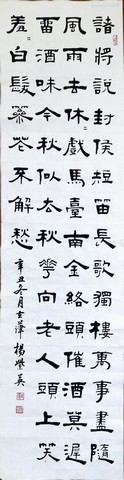 諸將說封侯短笛長歌獨樓萬事盡隨
風雨去休〻戲馬臺南金絡頭催酒莫遲
留酒味今秋似去秋華向老人頭上笑
羞〻白髮簪花不解愁
辛丑冬月楊英